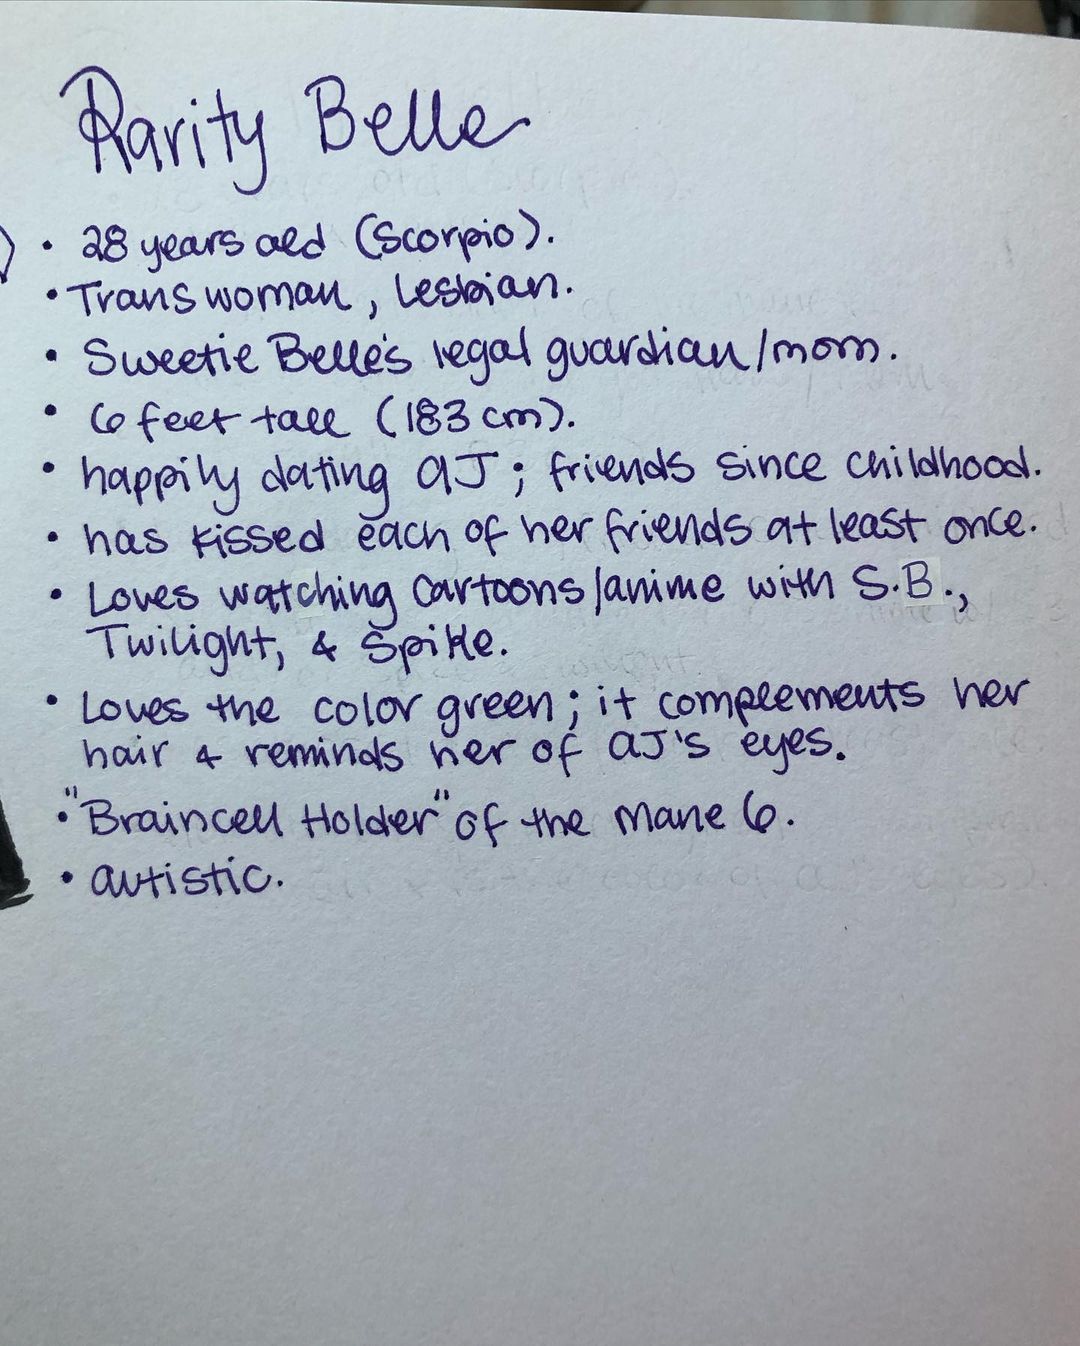 Rarity Belle
• 28 years old (Scorpio).
• Trans woman, Lesbian.
• Sweetie Belle's legal guardian/mom.
• 6 feet tall (183 cm).
• happily dating AJ; friends since childhood.
• has kissed each of her friends at least once.
• Loves watching cartoons/anime with S.B.,
Twilight, & Spike.
• Loves the color green; it complements her
hair & reminds her of AJ's eyes.
• "Braincell Holder" of the Mane 6.
• autistic.